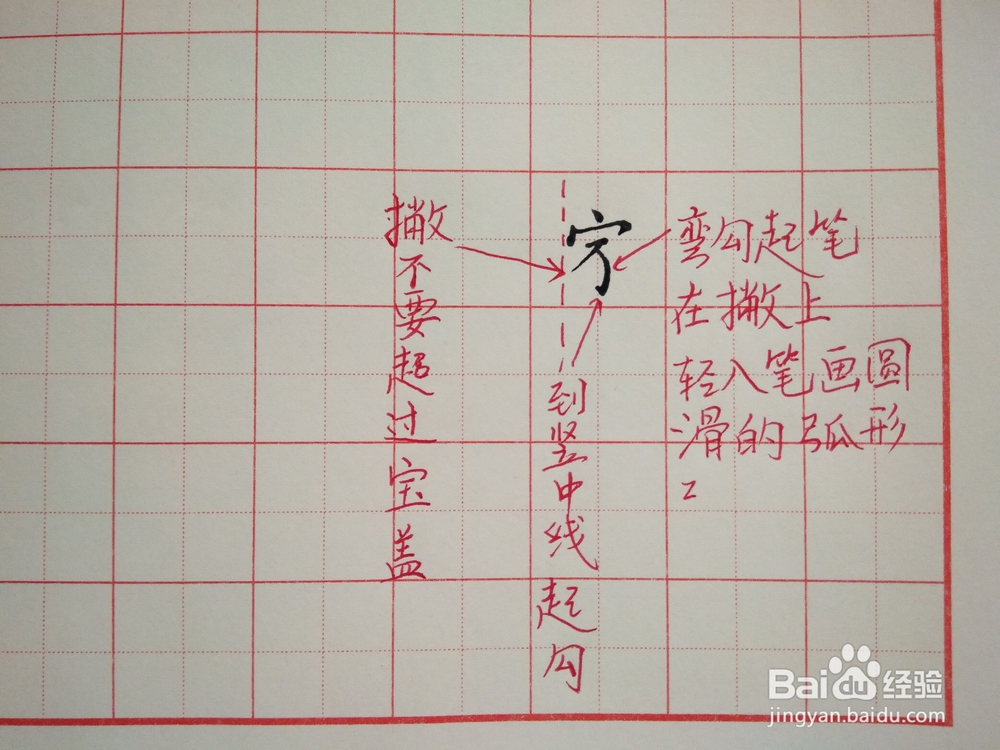 撇不要超过宝盖
到竖中线起勾
弯勾起笔
在撇上
轻入笔画圆
滑的弧形
Baidu经验
jingyan.baidu.com